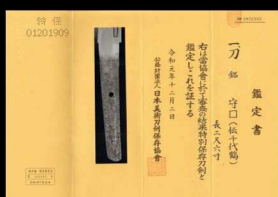 特保
01201909
鑑定書
一、刀 銘 守□(伝千代鶴)
長二尺六寸
右は當協會に於て審査の結果特別保存刀剣と
鑑定しこれを証する
令和元年十二月二日
公益財団法人日本美術刀剣保存協會